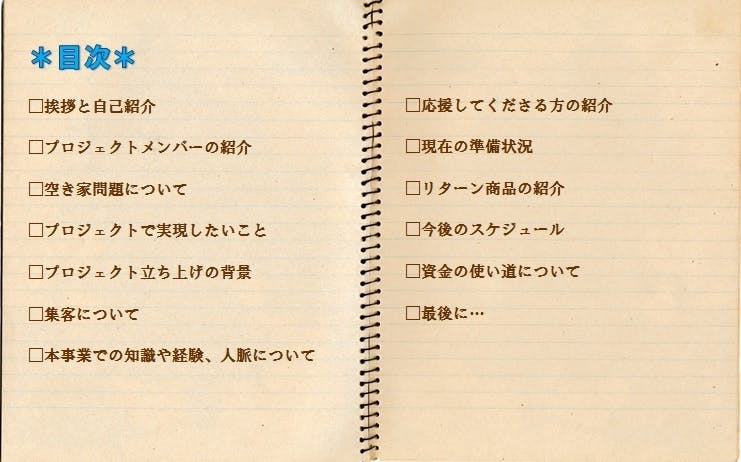 ＊目次＊
□挨拶と自己紹介
□プロジェクトメンバーの紹介
□空き家問題について
□プロジェクトで実現したいこと
□プロジェクト立ち上げの背景
□集客について
□本事業での知識や経験、人脈について
□応援してくださる方の紹介
□現在の準備状況
□リターン商品の紹介
□今後のスケジュール
□資金の使い道について
□最後に…